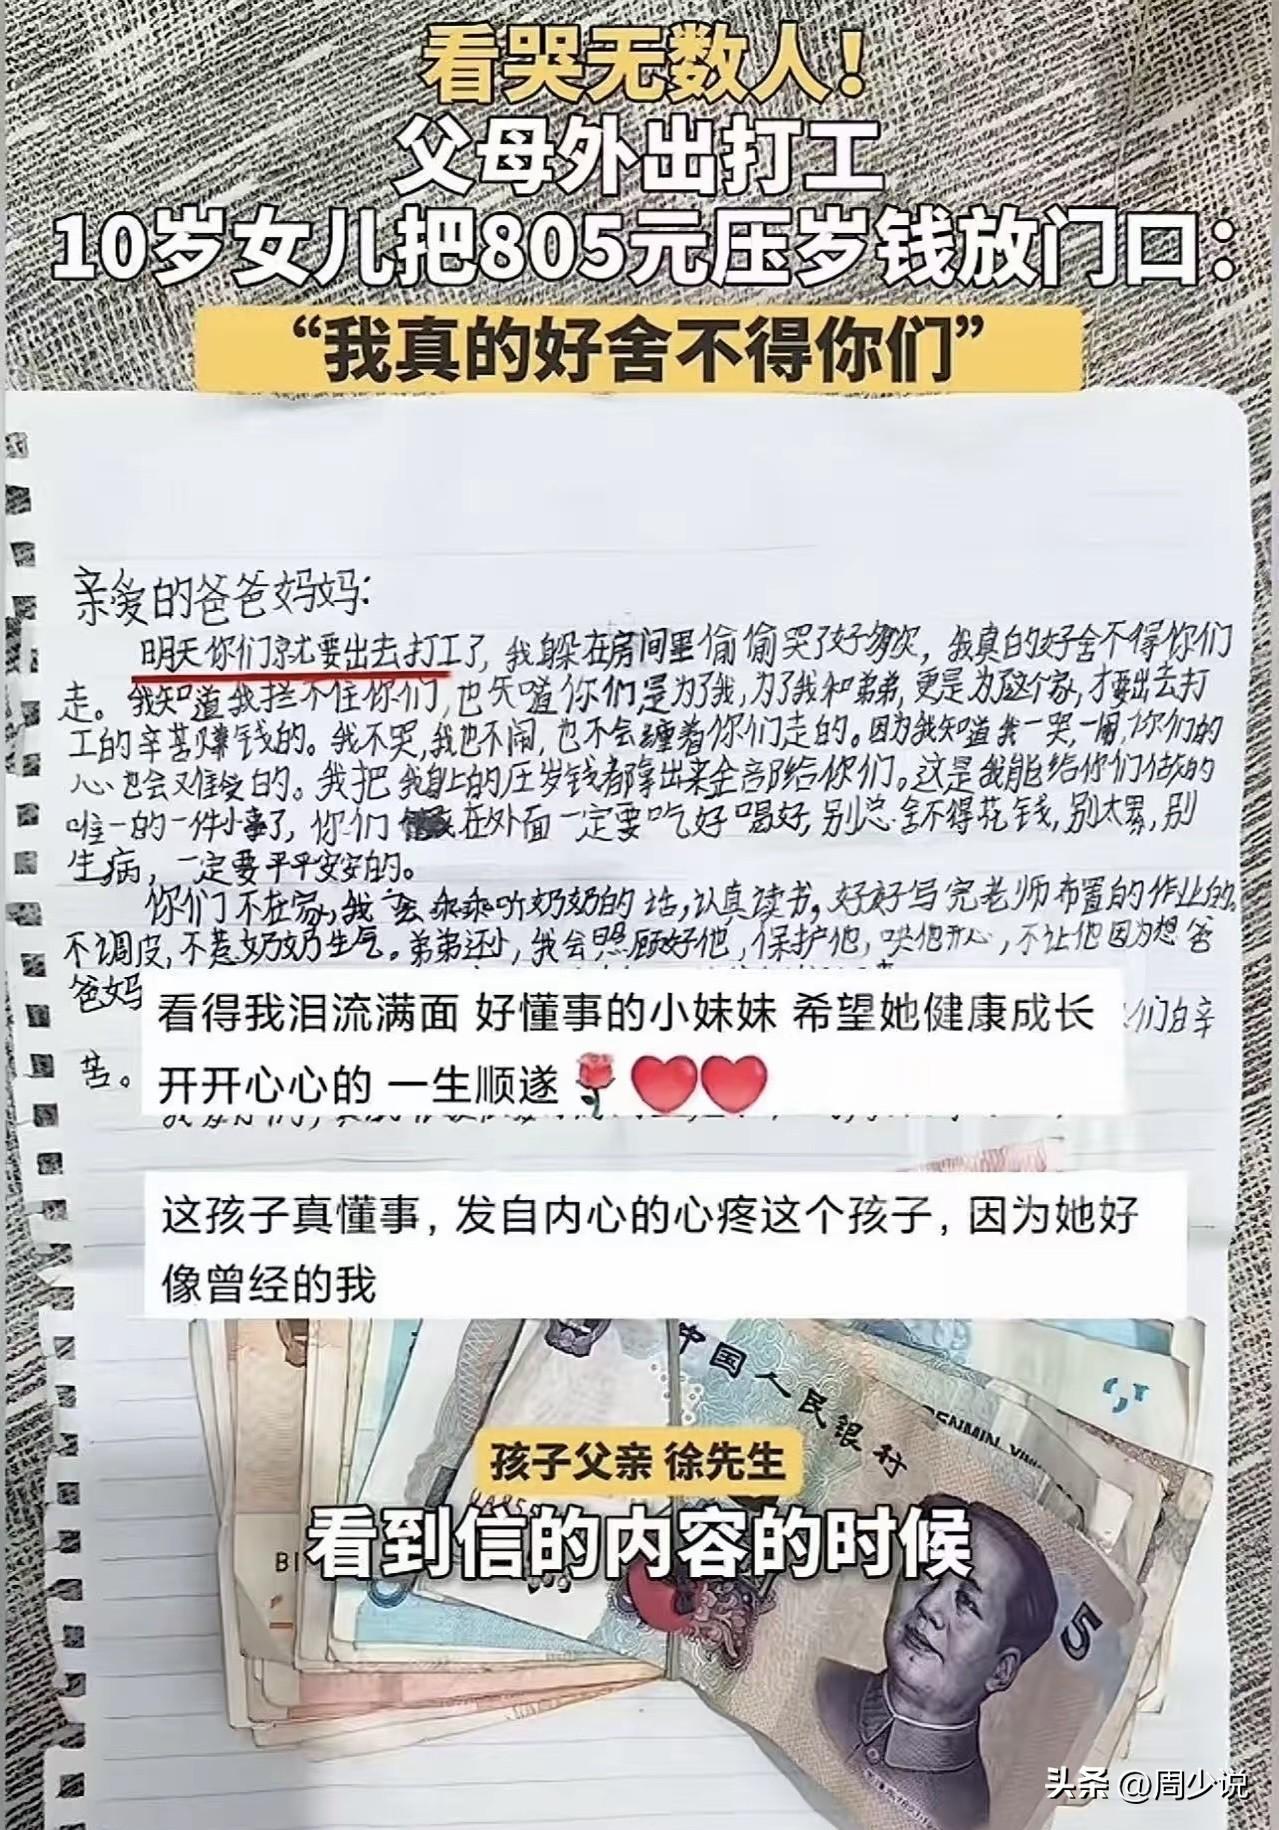 看哭无数人！
父母外出打工
10岁女儿把805元压岁钱放门口：
“我真的好舍不得你们”
亲爱的爸爸妈妈：
明天你们就要出去打工了，我躲在房间里偷偷哭了好多次，我真的好舍不得你们
走。我知道我拦不住你们，也知道你们是为了我，为了我和弟弟，更是为了这个家，才要出去打
工的辛苦赚钱的。我不哭，我也不闹，也不会缠着你们走的。因为我知道我一哭，一闹，你们的
心也会难受的。我把我身上的压岁钱都拿出来全部给你们。这是我能给你们做的
唯一的一件小事了，你们在外面一定要吃好喝好，别总舍不得花钱，别太累，别
生病，一定要平平安安的。
你们不在家，我会乖乖听奶奶的话，认真读书，好好写完老师布置的作业的。
不调皮，不惹奶奶生气。弟弟还小，我会照顾好他，保护他，哄他开心，不让他因为想爸
爸妈
们白辛
苦。
看得我泪流满面 好懂事的小妹妹 希望她健康成长
开开心心的 一生顺遂🌹❤️❤️
这孩子真懂事，发自内心的心疼这个孩子，因为她好
像曾经的我
中国人民银行
孩子父亲 徐先生
看到信的内容的时候
5
头条 @周少说